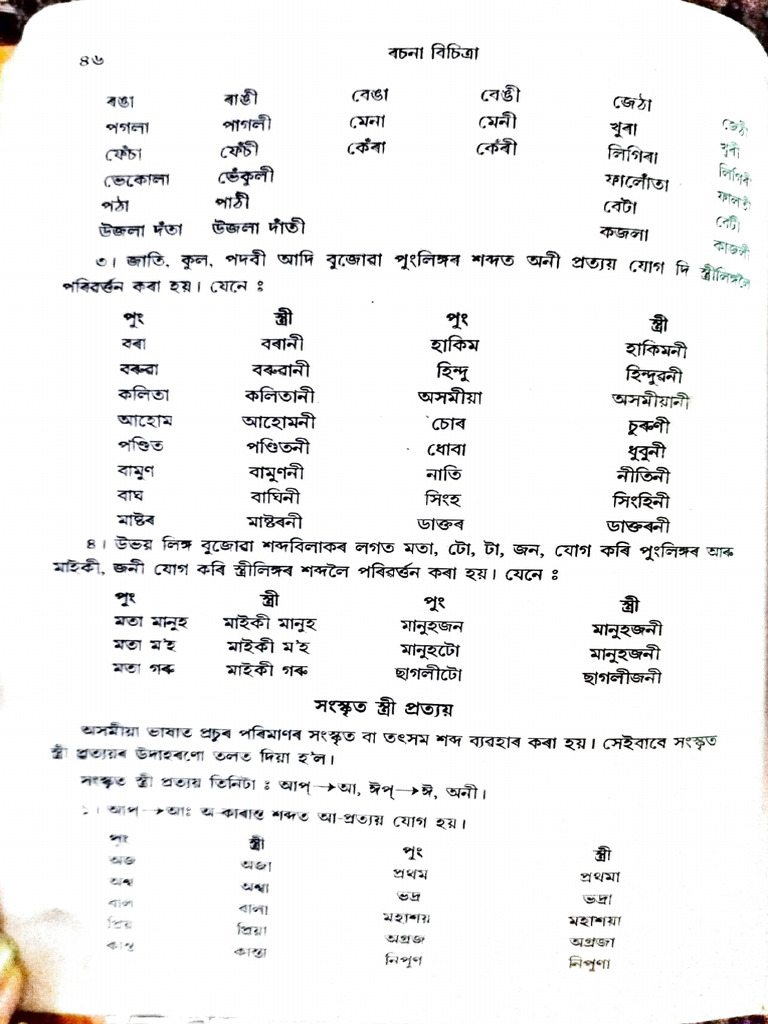 ৪৬ ৰচনা বিচিত্ৰা
ৰঙা ৰাঙী বেঙা বেঙী জেঠা জেঠী
পগলা পাগলী মেনা মেনী খুৰা খুৰী
ফেঁচা ফেঁচী কেঁৰা কেঁৰী লিগিৰা লিগিৰী
ভেকোলা ভেঁকুলী ফালোঁতা
পঠা পাঠী বেটা বেটী
উজলা দঁতা উজলা দাঁতী কজলা কাজলী
৩। জাতি, কুল, পদবী আদি বুজোৱা পুংলিঙ্গৰ শব্দত অনী প্ৰত্যয় যোগ দি স্ত্ৰীলিঙ্গলৈ
পৰিৱৰ্ত্তন কৰা হয়। যেনে ঃ
পুং স্ত্ৰী পুং স্ত্ৰী
বৰা বৰানী হাকিম হাকিমনী
বৰুৱা বৰুৱানী হিন্দু হিন্দুৱনী
কলিতা কলিতানী অসমীয়া অসমীয়ানী
আহোম আহোমনী চোৰ চুৰুণী
পণ্ডিত পণ্ডিতনী ধোবা ধুবুনী
বামুণ বামুণনী নাতি নাতিনী
বাঘ বাঘিনী সিংহ সিংহিনী
মাষ্টৰ মাষ্টৰনী ডাক্তৰ ডাক্তৰনী
৪। উভয় লিঙ্গ বুজোৱা শব্দবিলাকৰ লগত মতা, টো, টা, জন, যোগ কৰি পুংলিঙ্গৰ আৰু
মাইকী, জনী যোগ কৰি স্ত্ৰীলিঙ্গৰ শব্দলৈ পৰিৱৰ্ত্তন কৰা হয়। যেনে ঃ
পুং স্ত্ৰী পুং স্ত্ৰী
মতা মানুহ মাইকী মানুহ মানুহজন মানুহজনী
মতা ম'হ মাইকী ম'হ মানুহটো মানুহজনী
মতা গৰু মাইকী গৰু ছাগলীটো ছাগলীজনী
সংস্কৃত স্ত্ৰী প্ৰত্যয়
অসমীয়া ভাষাত প্ৰচুৰ পৰিমাণৰ সংস্কৃত বা তৎসম শব্দ ব্যৱহাৰ কৰা হয়। সেইবাবে সংস্কৃত
স্ত্ৰী প্ৰত্যয়ৰ উদাহৰণো তলত দিয়া হ'ল।
সংস্কৃত স্ত্ৰী প্ৰত্যয় তিনিটা ঃ আপ্→আ, ঈপ্→ঈ, অনী।
১। আপ্→আঃ অ-কাৰান্ত শব্দত আ-প্ৰত্যয় যোগ হয়।
পুং স্ত্ৰী পুং স্ত্ৰী
অজ অজা প্ৰথম প্ৰথমা
অশ্ব অশ্বা ভদ্ৰ ভদ্ৰা
বাল বালা মহাশয় মহাশয়া
প্ৰিয় প্ৰিয়া অগ্ৰজ অগ্ৰজা
কান্ত কান্তা নিপুণ নিপুণা